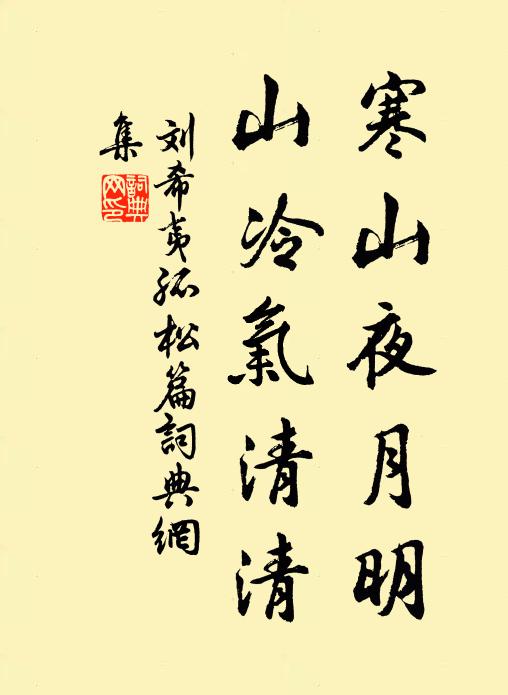 寒山夜月明
山冷氣清清
刘希夷孤松篇詞典網
集
詞典網印